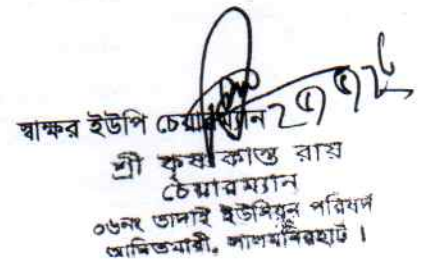 স্বাক্ষর ইউপি চেয়ারম্যান
শ্রী কৃষ্ণ কান্ত রায়
চেয়ারম্যান
০৬নং ভাদাই ইউনিয়ন পরিষদ
আদিতমারী, লালমনিরহাট ।